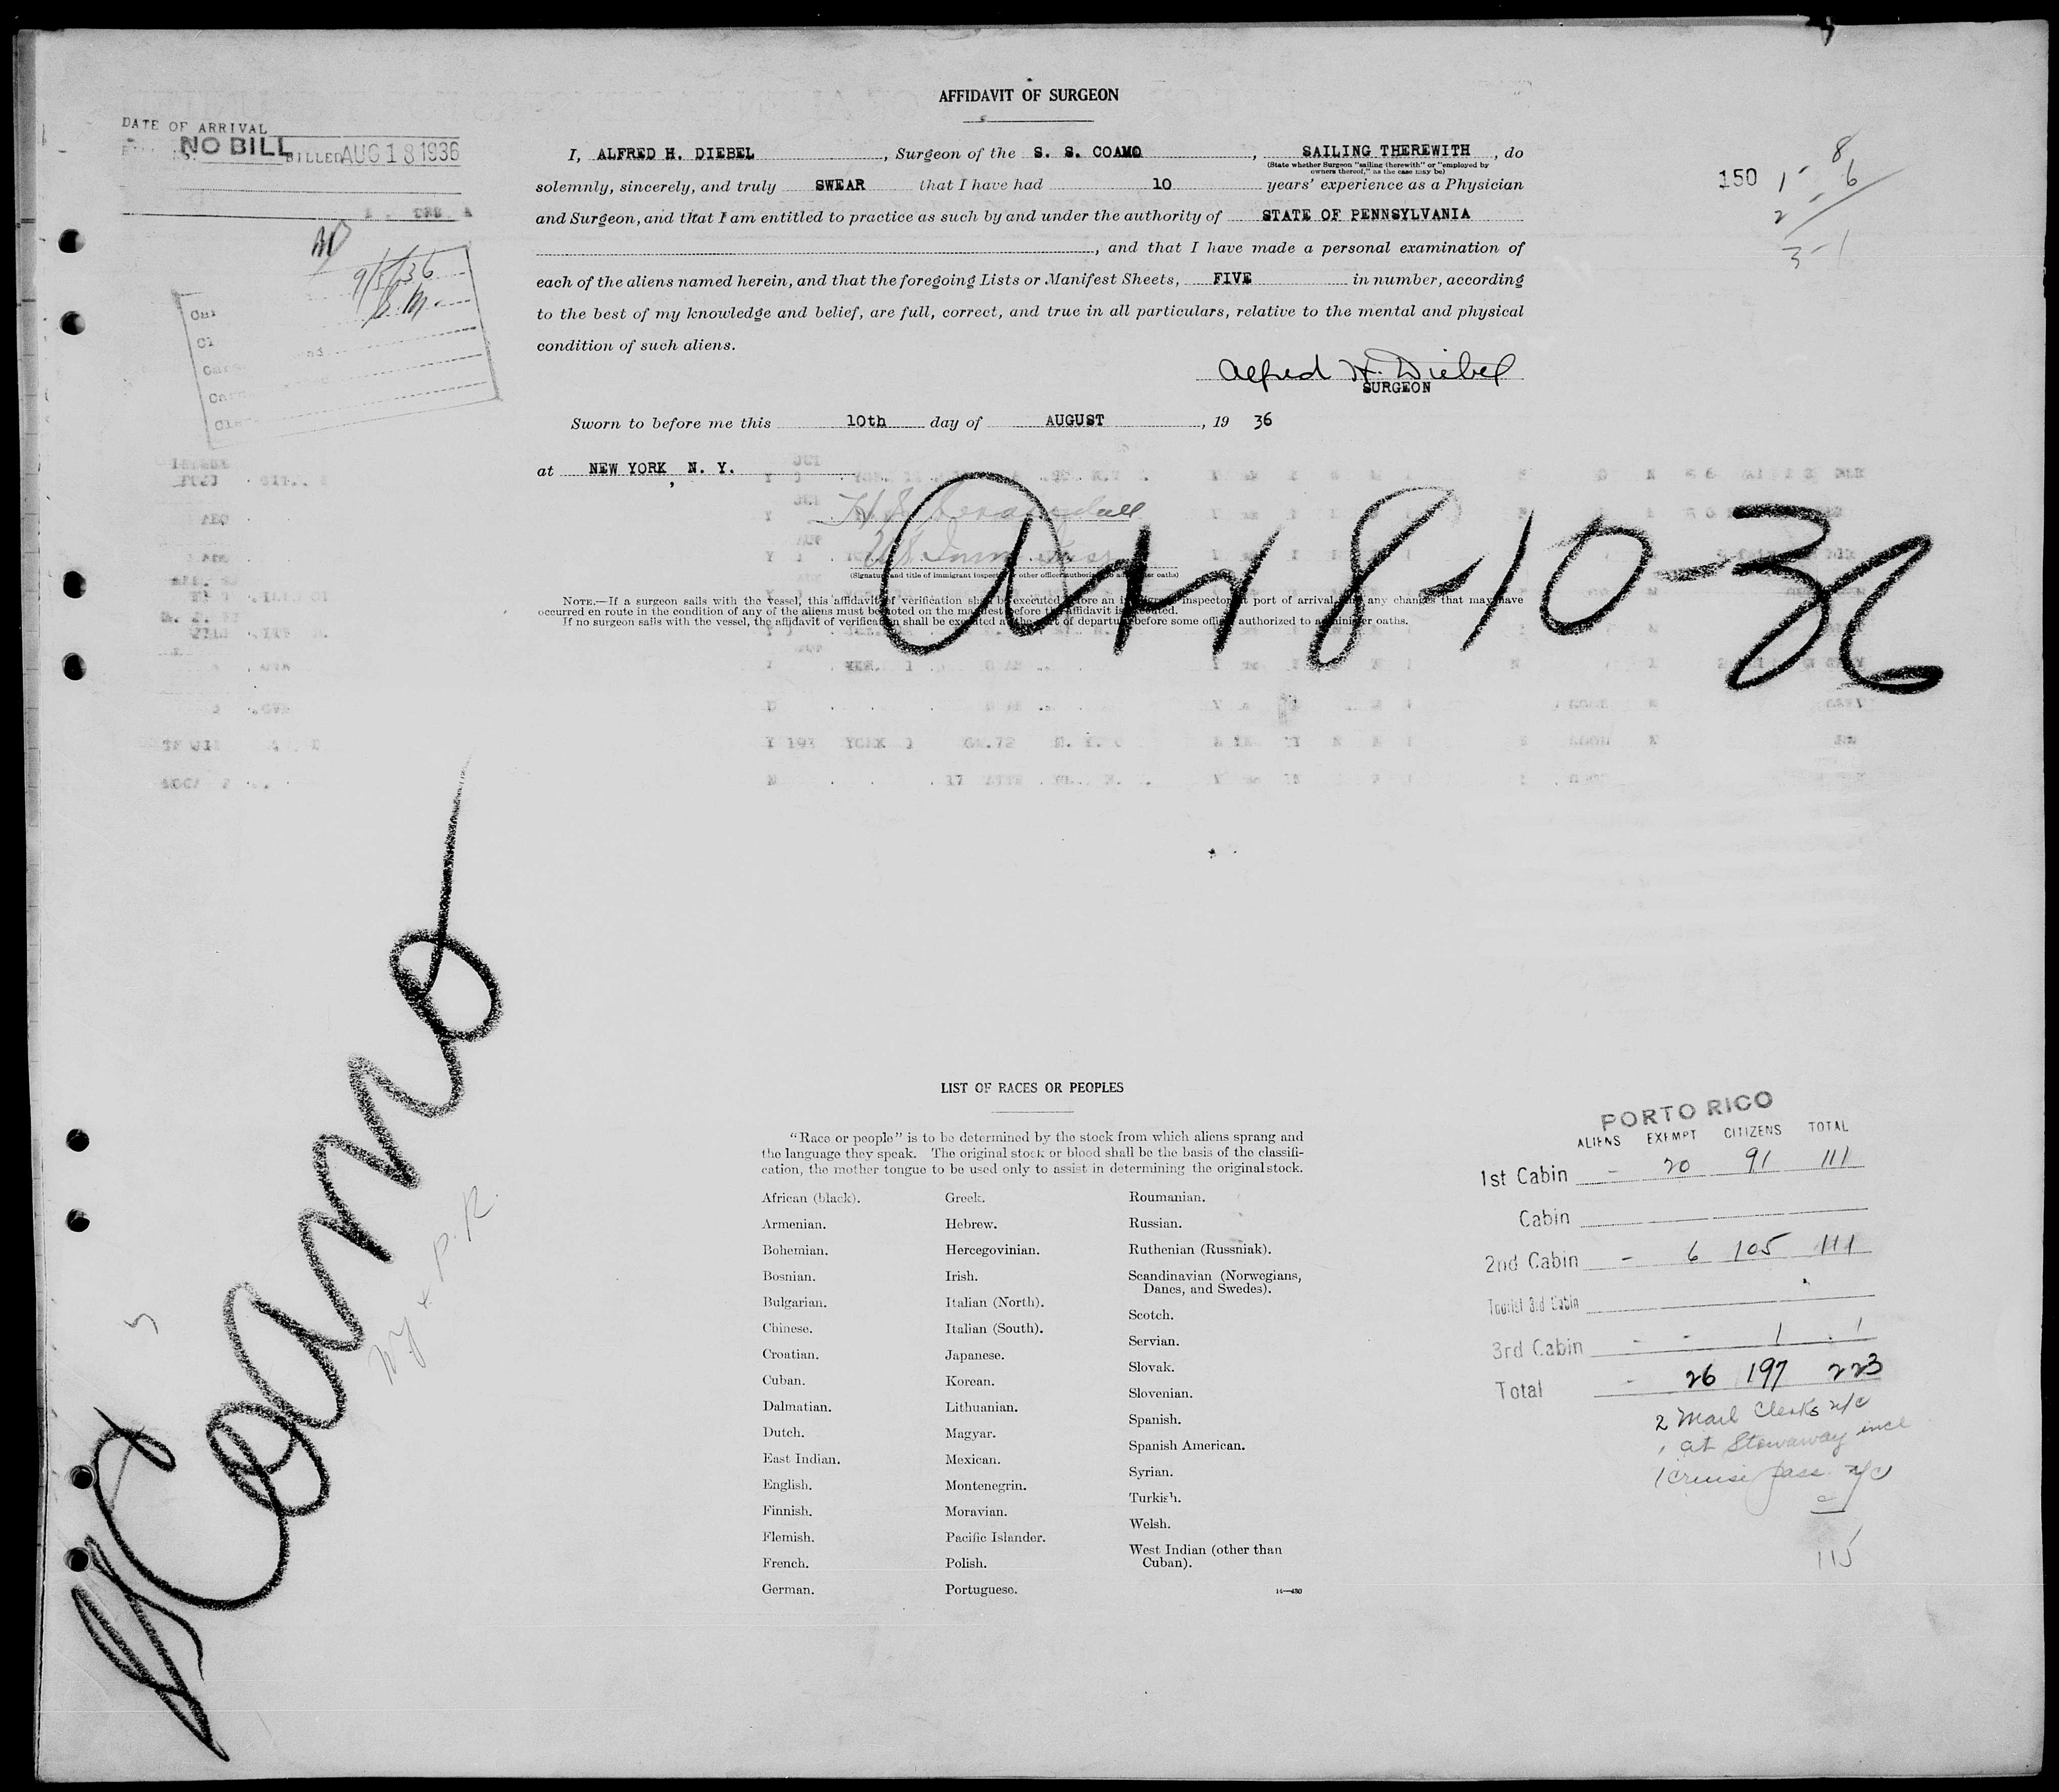 AFFIDAVIT OF SURGEON
DATE OF ARRIVAL
NO BILL BILLED AUG 18 1936
I, ALFRED H. DIEBEL, Surgeon of the S. S. COAMO, SAILING THEREWITH, do
(State whether Surgeon "sailing therewith" or "employed by
owners thereof," as the case may be)
solemnly, sincerely, and truly SWEAR that I have had 10 years' experience as a Physician
and Surgeon, and that I am entitled to practice as such by and under the authority of STATE OF PENNSYLVANIA
, and that I have made a personal examination of
each of the aliens named herein, and that the foregoing Lists or Manifest Sheets, FIVE in number, according
to the best of my knowledge and belief, are full, correct, and true in all particulars, relative to the mental and physical
condition of such aliens.
Alfred H. Diebel
SURGEON
Sworn to before me this 10th day of AUGUST, 19 36
at NEW YORK, N. Y.
(Signature and title of immigrant inspector or other officer authorized to administer oaths)
NOTE.—If a surgeon sails with the vessel, this affidavit of verification shall be executed before an immigrant inspector at port of arrival, and any changes that may have
occurred en route in the condition of any of the aliens must be noted on the manifest before the affidavit is executed.
If no surgeon sails with the vessel, the affidavit of verification shall be executed at the port of departure before some officer authorized to administer oaths.
150
8
1 - 6
2 -
3 - 1
9/5/36
8-10-36
SS Coamo
NY + P.R.
LIST OF RACES OR PEOPLES
"Race or people" is to be determined by the stock from which aliens sprang and
the language they speak. The original stock or blood shall be the basis of the classifi-
cation, the mother tongue to be used only to assist in determining the original stock.
African (black).
Armenian.
Bohemian.
Bosnian.
Bulgarian.
Chinese.
Croatian.
Cuban.
Dalmatian.
Dutch.
East Indian.
English.
Finnish.
Flemish.
French.
German.
Greek.
Hebrew.
Hercegovinian.
Irish.
Italian (North).
Italian (South).
Japanese.
Korean.
Lithuanian.
Magyar.
Mexican.
Montenegrin.
Moravian.
Pacific Islander.
Polish.
Portuguese.
Roumanian.
Russian.
Ruthenian (Russniak).
Scandinavian (Norwegians,
Danes, and Swedes).
Scotch.
Servian.
Slovak.
Slovenian.
Spanish.
Spanish American.
Syrian.
Turkish.
Welsh.
West Indian (other than
Cuban).
14—430
PORTO RICO
ALIENS EXEMPT CITIZENS TOTAL
1st Cabin - 20 91 111
Cabin
2nd Cabin - 6 105 111
Tourist 3rd Cabin
3rd Cabin - - 1 1
Total - 26 197 223
2 Mail Clerks n/c
1 at Stowaway incl
1 cruise pass n/c
115